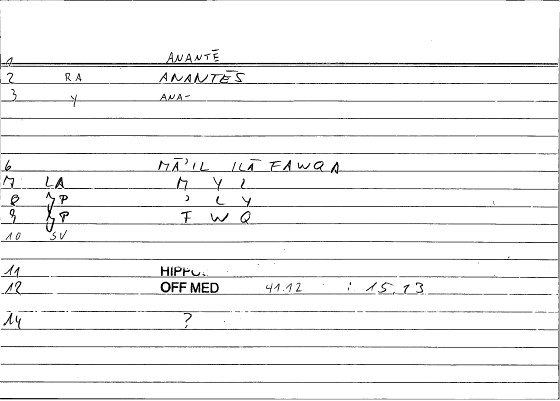 1 ANANTĒ
2 RA ANANTĒS
3 Y ANA-
6 MĀʾIL ILĀ FAWQA
7 LA M Y L
8 ʾ L Y
9 F W Q
10 SV
11
12 OFF MED 41.12 : 15.13
14 ?